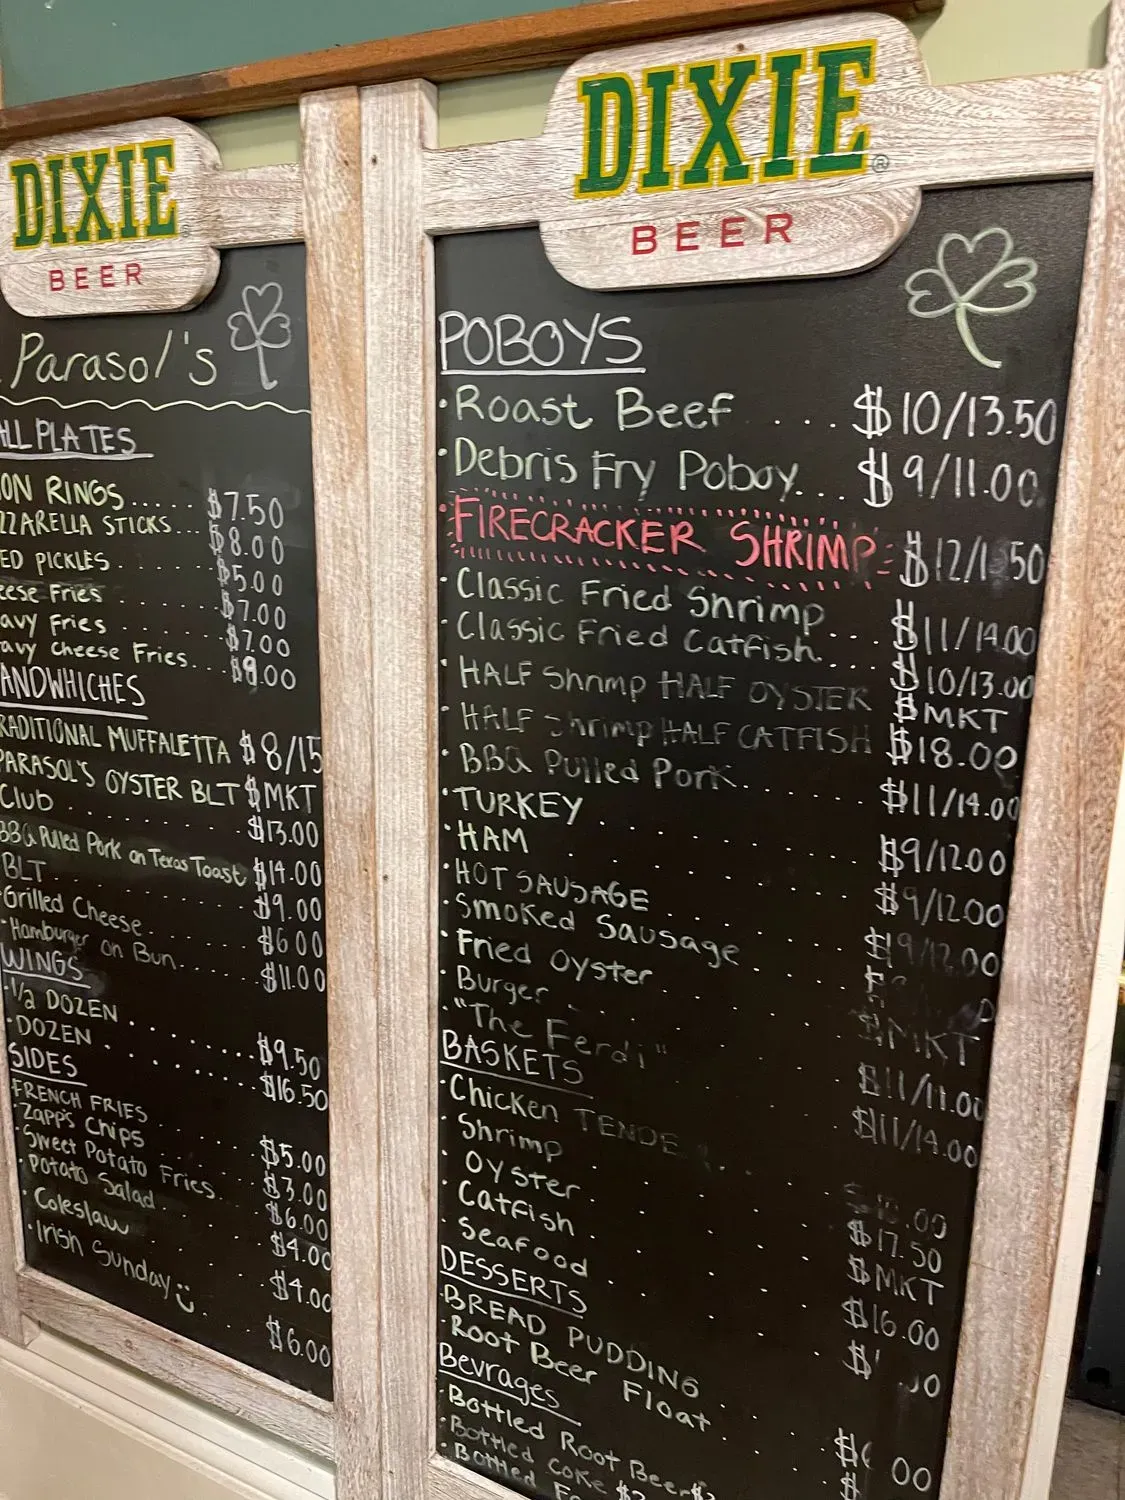 DIXIE
BEER
Parasol's
PLATES
RINGS..... $7.50
STICKS... $8.00
PICKLES..... $5.00
Fries...... $7.00
Fries...... $7.00
Cheese Fries... $9.00
MUFFALETTA $8/15
PARASOL'S OYSTER BLT $MKT
Club......... $13.00
Pulled Pork on Texas Toast $14.00
BLT......... $9.00
Grilled Cheese...... $6.00
Hamburger on Bun...... $11.00
WINGS
1/2 DOZEN........ $9.50
DOZEN........ $16.50
SIDES
FRENCH FRIES...... $5.00
Zapp's Chips...... $3.00
Sweet Potato Fries... $6.00
Potato Salad...... $4.00
Coleslaw...... $4.00
Irish Sunday... $6.00
DIXIE®
BEER
POBOYS
Roast Beef..... $10/13.50
Debris Fry Poboy... $9/11.00
FIRECRACKER SHRIMP
Classic Fried Shrimp... $11/14.00
Classic Fried Catfish... $10/13.00
HALF Shrimp HALF OYSTER $MKT
HALF Shrimp HALF CATFISH $18.00
BBQ Pulled Pork...... $11/14.00
TURKEY........ $9/12.00
HAM........ $9/12.00
HOT SAUSAGE...... $9/12.00
Smoked Sausage
Fried Oyster...... $MKT
Burger...... $11/11.00
"The Ferdi"...... $11/14.00
BASKETS
Chicken
Shrimp...... $17.50
OYSTER...... $MKT
Catfish...... $16.00
Seafood
DESSERTS
BREAD PUDDING
Root Beer Float
Bevrages
Bottled Root Beer
Bottled Coke
Bottled